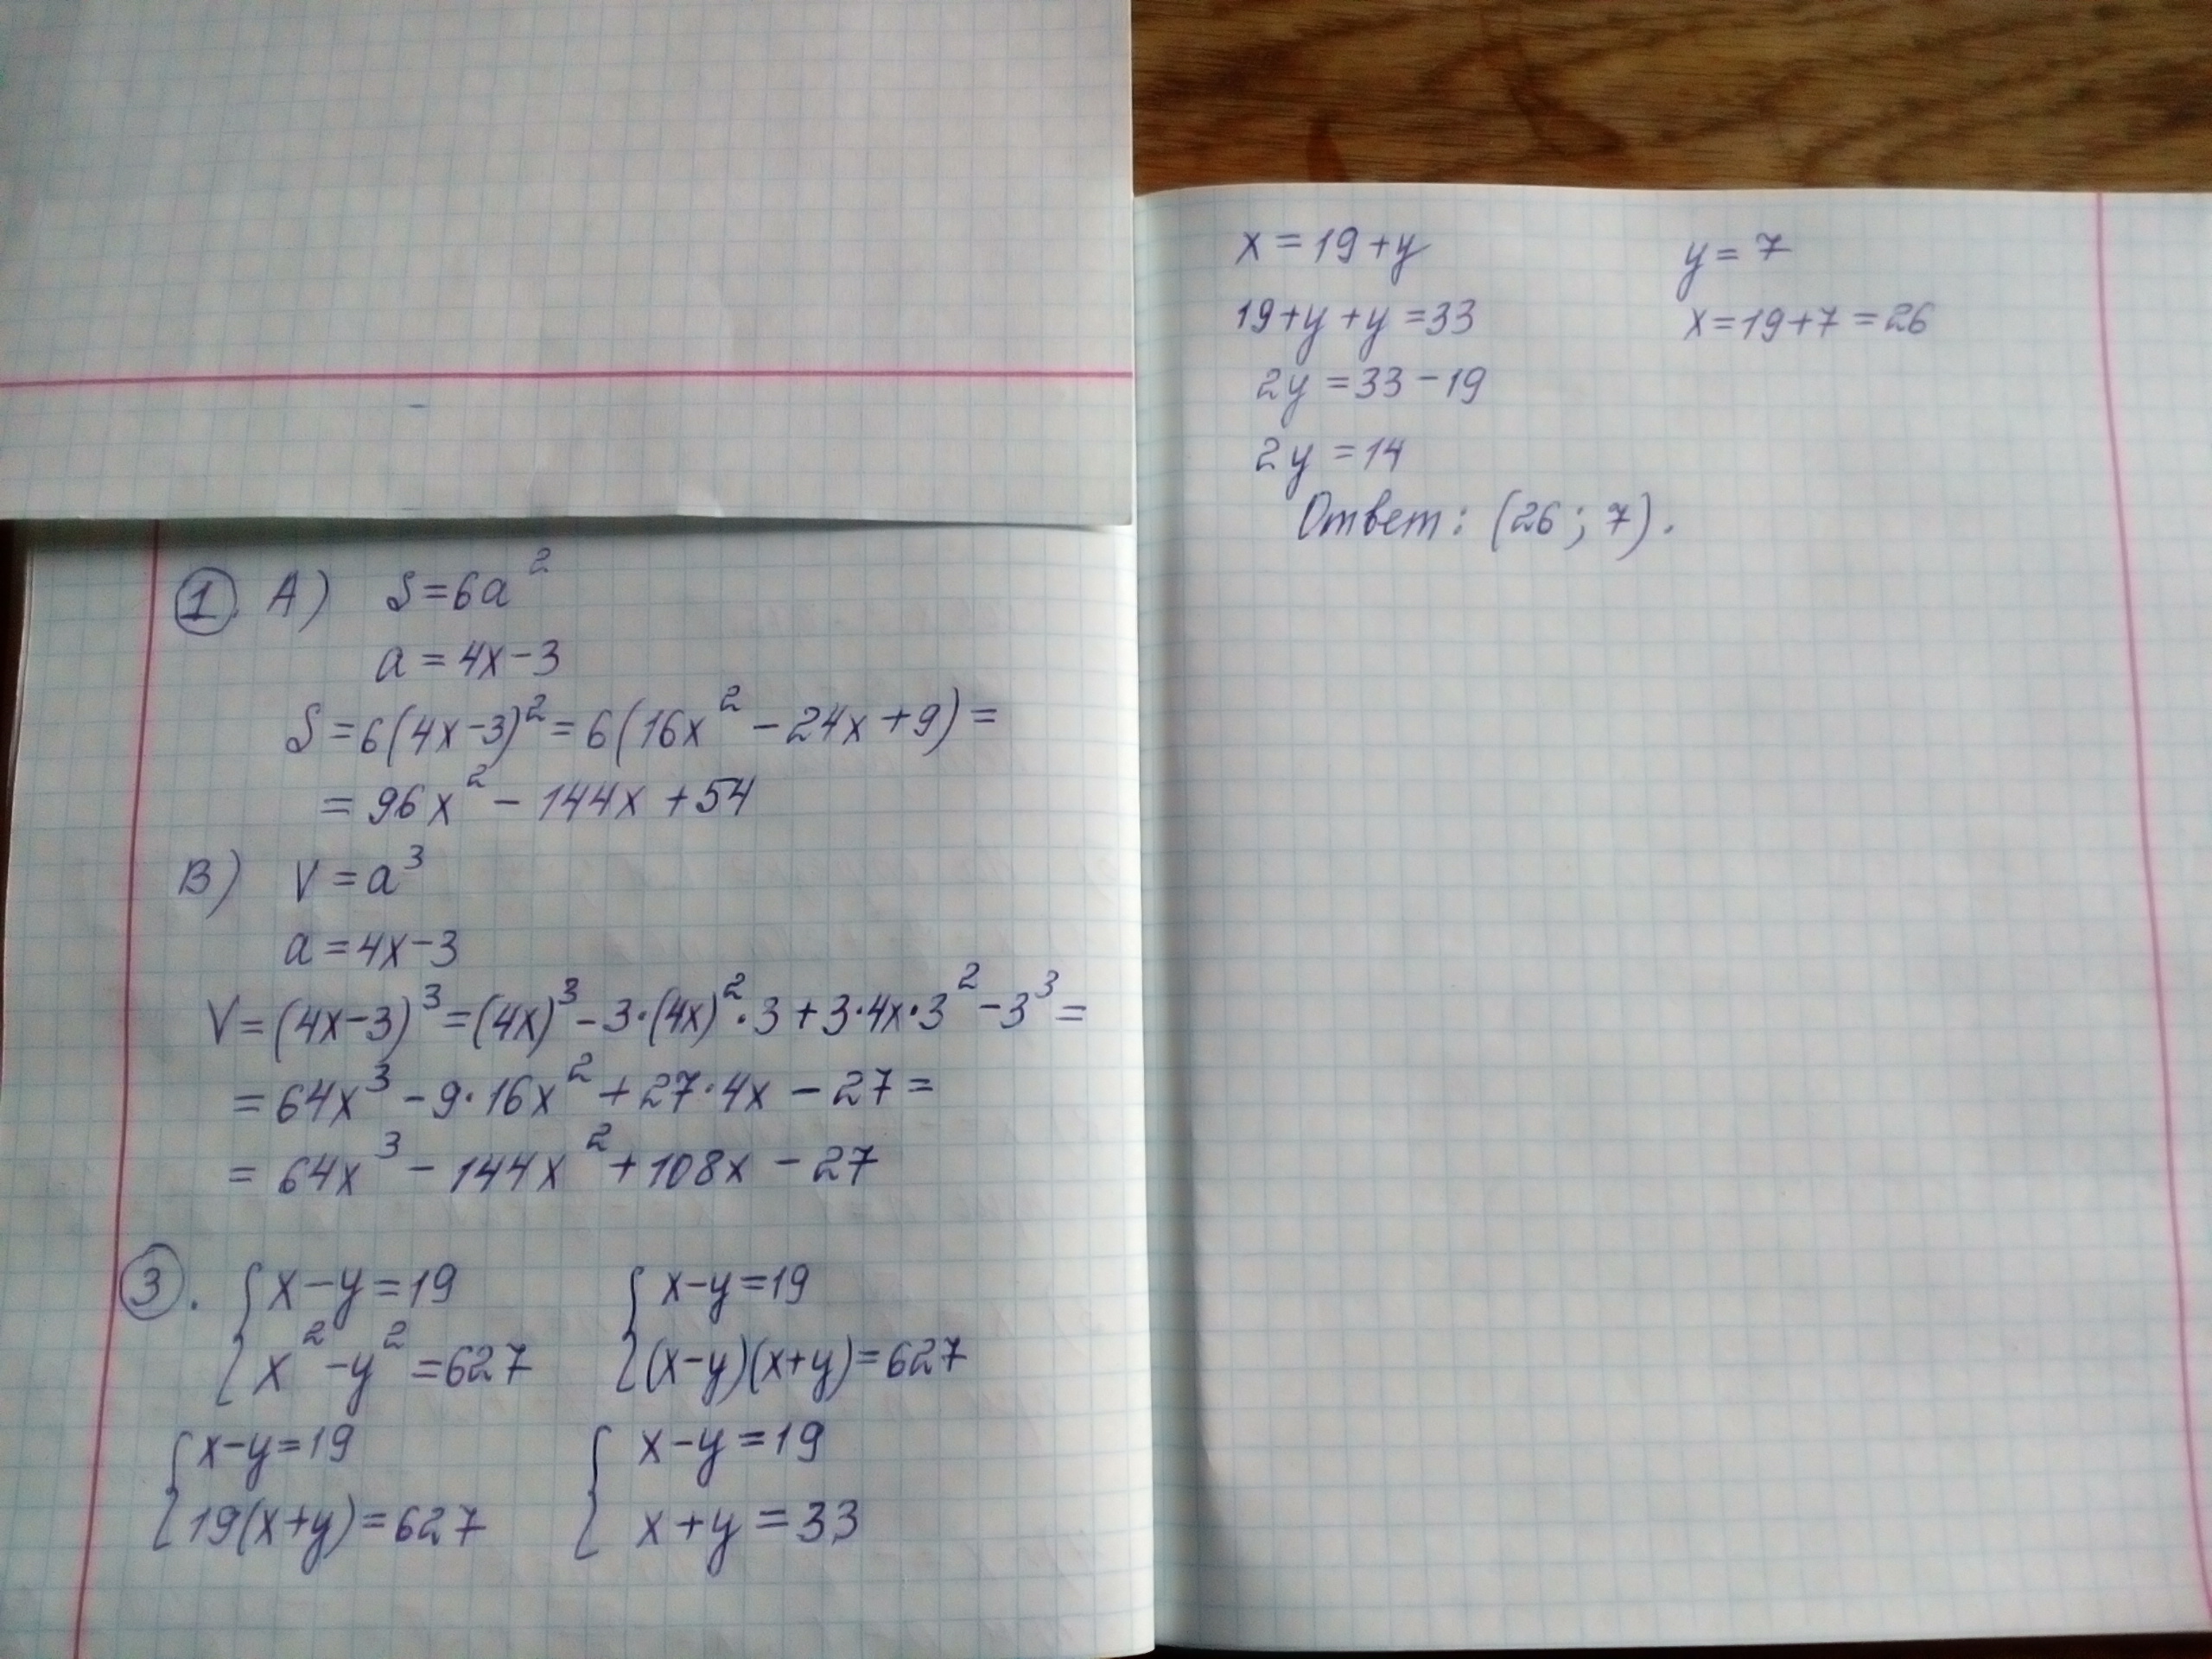 1. A) S=6a²
a=4x-3
S=6(4x-3)²=6(16x²-24x+9)=
=96x²-144x+54
B) V=a³
a=4x-3
V=(4x-3)³=(4x)³-3·(4x)²·3+3·4x·3²-3³=
=64x³-9·16x²+27·4x-27=
=64x³-144x²+108x-27
3. {x-y=19 {x-y=19
x²-y²=627 (x-y)(x+y)=627
{x-y=19 {x-y=19
19(x+y)=627 x+y=33
x=19+y y=7
19+y+y=33 x=19+7=26
2y=33-19
2y=14
Ответ: (26; 7).